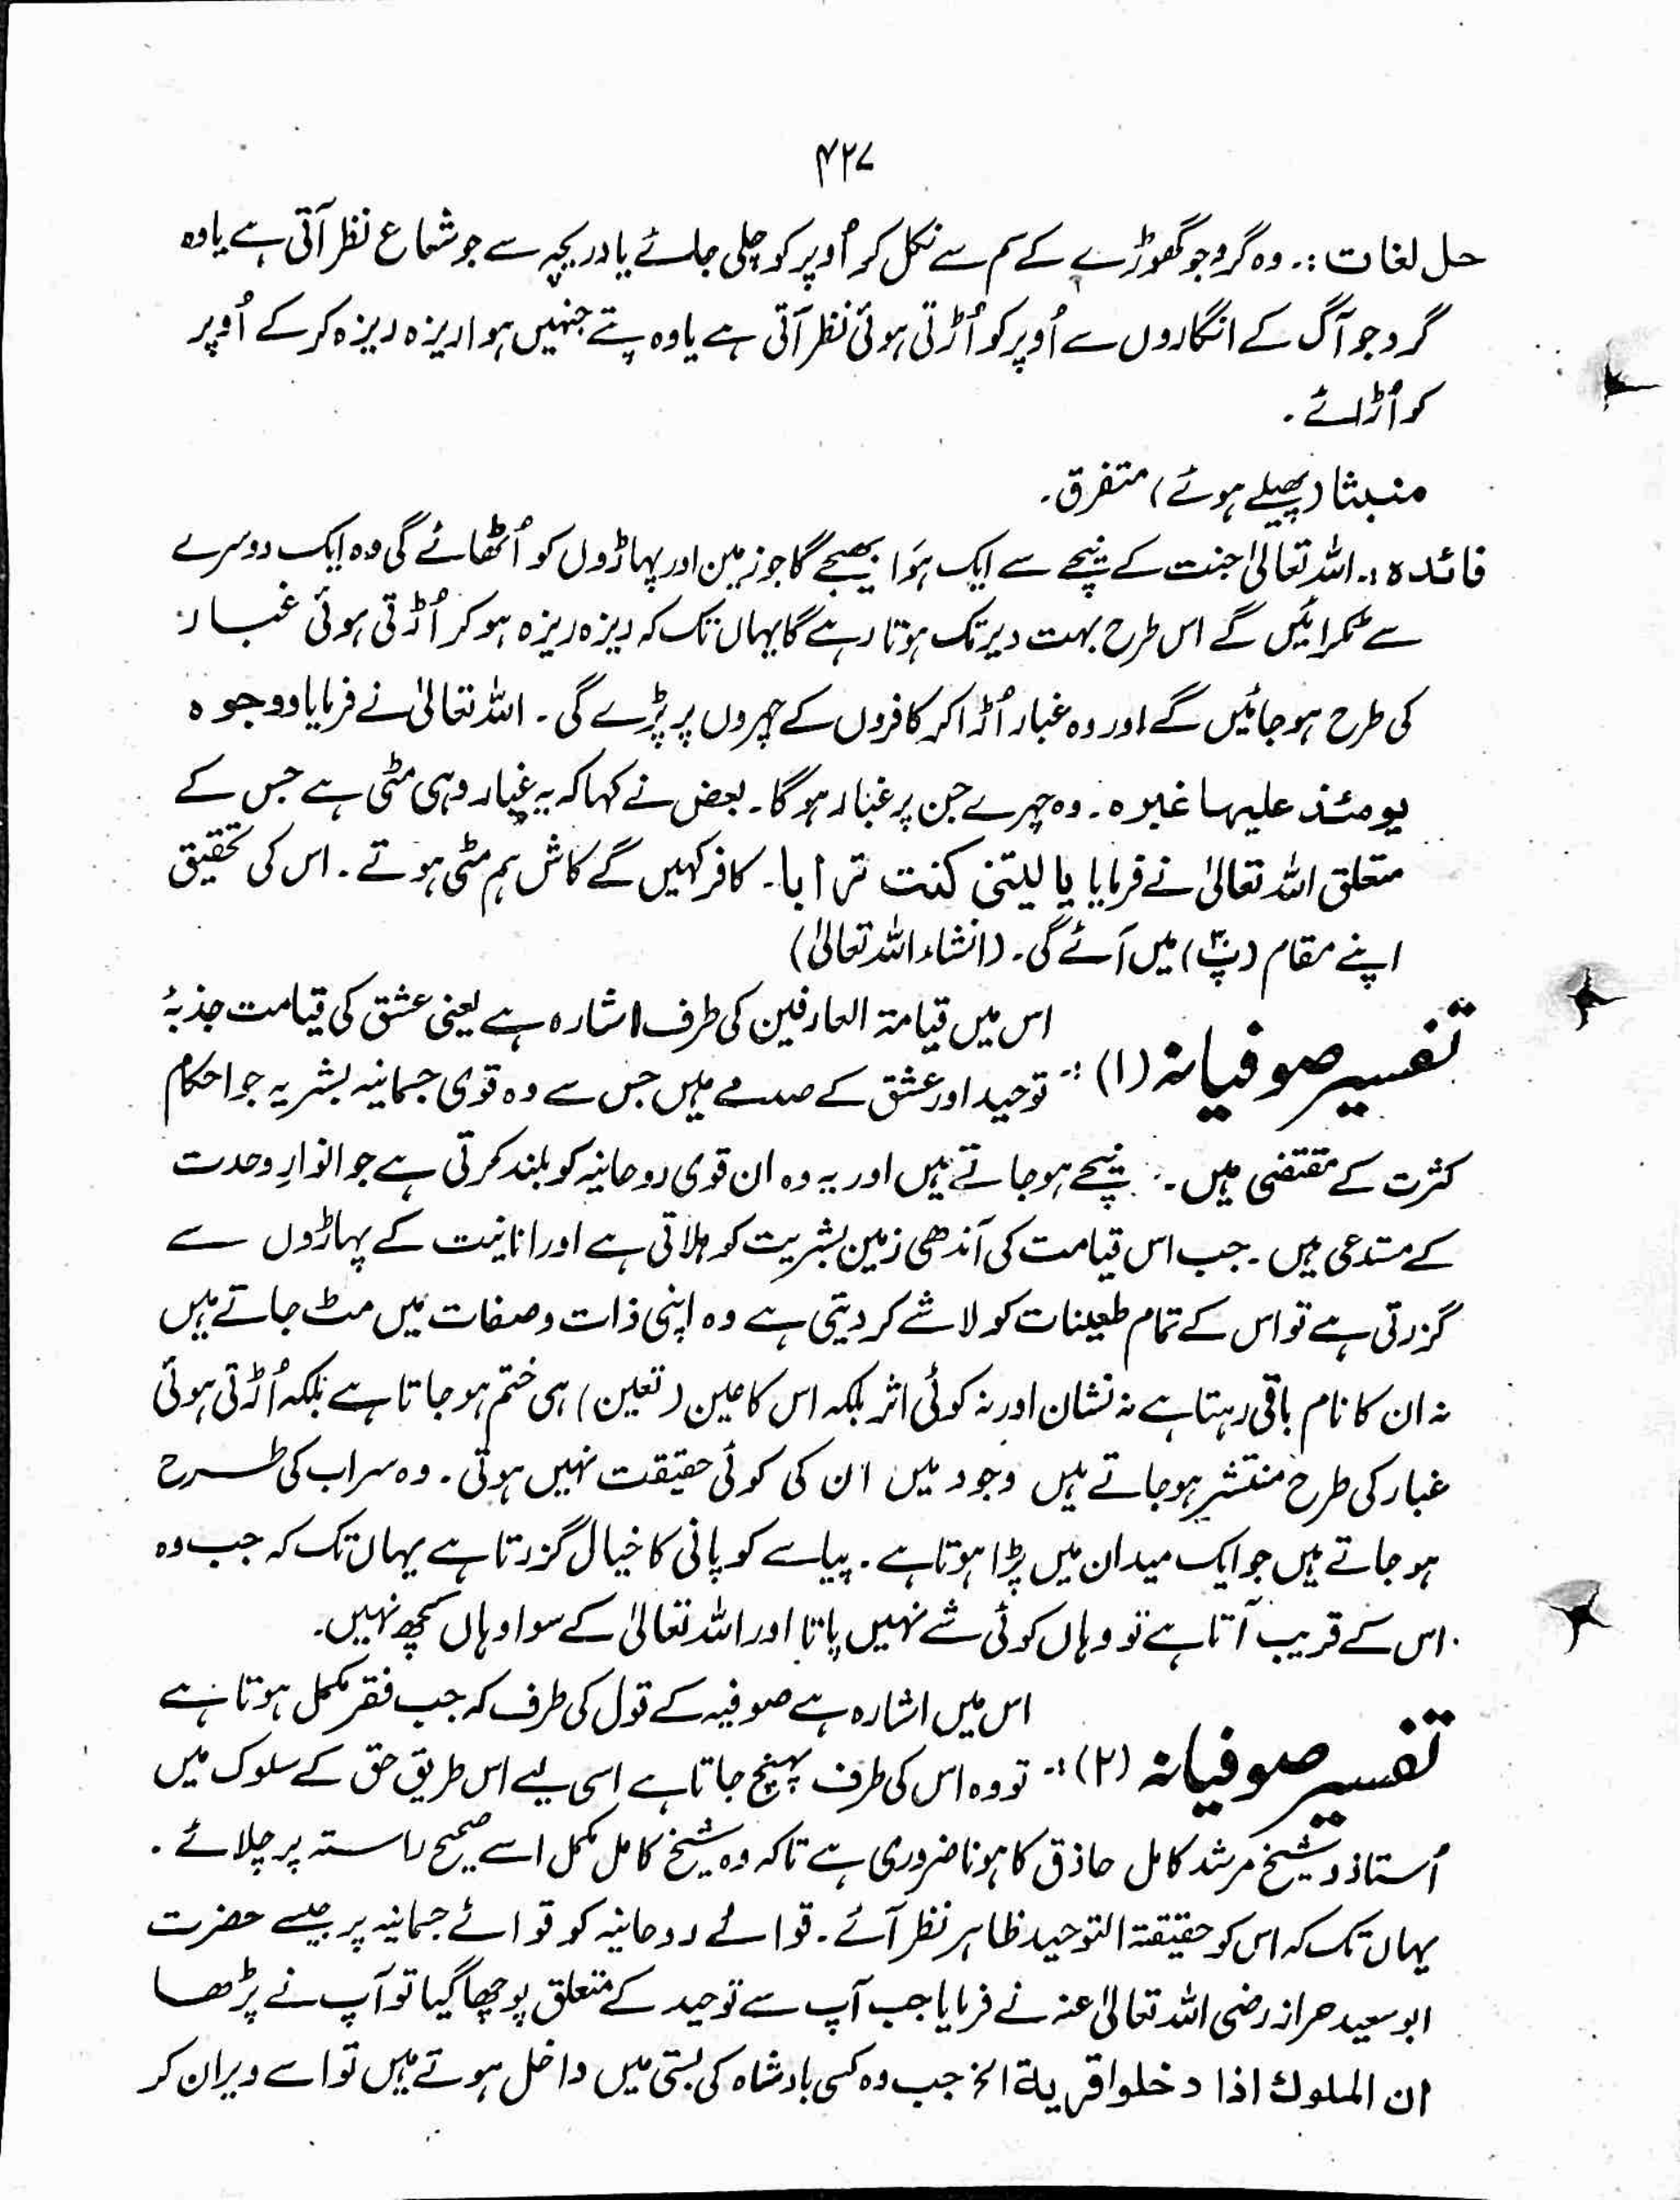 ۴۲۷
حل لغات :۔ وہ گرد جو گھوڑے کے سم سے نکل کر اُوپر کو چلی جائے یا دریچہ سے جو شعاع نظر آتی ہے یا وہ
گرد جو آگ کے انگاروں سے اُوپر کو اُڑتی ہوئی نظر آتی ہے یا وہ پتے جنہیں ہوا ریزہ ریزہ کر کے اُوپر
کو اُڑائے ۔
منبثا (پھیلے ہوئے) متفرق ۔
فائدہ :۔ اللہ تعالیٰ جنت کے نیچے سے ایک ہَوا بھیجے گا جو زمین اور پہاڑوں کو اُٹھائے گی وہ ایک دوسرے
سے ٹکرائیں گے اس طرح بہت دیر تک ہوتا رہے گا یہاں تک کہ ریزہ ریزہ ہو کر اُڑتی ہوئی غبار
کی طرح ہو جائیں گے اور وہ غبار اُڑ اکر کافروں کے چہروں پر پڑے گی ۔ اللہ تعالیٰ نے فرمایا ووجوہ
یومئذ علیہا غبرہ ۔ وہ چہرے جن پر غبار ہو گا ۔ بعض نے کہا کہ یہ غبار وہی مٹی ہے جس کے
متعلق اللہ تعالیٰ نے فرمایا یا لیتنی کنت ترابا ۔ کافر کہیں گے کاش ہم مٹی ہوتے ۔ اس کی تحقیق
اپنے مقام (پ۳۰) میں آئے گی ۔ (انشاء اللہ تعالیٰ)
اس میں قیامۃ العارفین کی طرف اشارہ ہے یعنی عشق کی قیامت جذبۂ
تفسیر صوفیانہ (۱) :۔ توحید اور عشق کے صدمے میں جس سے وہ قوی جسمانیہ بشریہ جو احکام
کثرت کے مقتضی ہیں ۔ نیچے ہو جاتے ہیں اور یہ وہ ان قوی روحانیہ کو بلند کرتی ہے جو انوارِ وحدت
کے مستدعی ہیں ۔ جب اس قیامت کی آندھی زمین بشریت کو ہلاتی ہے اور انانیت کے پہاڑوں سے
گزرتی ہے تو اس کے تمام طعینات کو لاشے کر دیتی ہے وہ اپنی ذات و صفات میں مٹ جاتے ہیں
نہ ان کا نام باقی رہتا ہے نہ نشان اور نہ کوئی اثر بلکہ اس کا عین (تعین) ہی ختم ہو جاتا ہے بلکہ اُڑتی ہوئی
غبار کی طرح منتشر ہو جاتے ہیں وجود میں ان کی کوئی حقیقت نہیں ہوتی ۔ وہ سراب کی طرح
ہو جاتے ہیں جو ایک میدان میں پڑا ہوتا ہے ۔ پیاسے کو پانی کا خیال گزرتا ہے یہاں تک کہ جب وہ
اس کے قریب آتا ہے تو وہاں کوئی شے نہیں پاتا اور اللہ تعالیٰ کے سوا وہاں کچھ نہیں ۔
اس میں اشارہ ہے صوفیہ کے قول کی طرف کہ جب فقر مکمل ہوتا ہے
تفسیر صوفیانہ (۲) :۔ تو وہ اس کی طرف پہنچ جاتا ہے اسی لیے اس طریق حق کے سلوک میں
اُستاذ و شیخ مرشد کامل حاذق کا ہونا ضروری ہے تاکہ وہ شیخ کامل مکمل اسے صحیح راستہ پر چلائے ۔
یہاں تک کہ اس کو حقیقۃ التوحید ظاہر نظر آئے ۔ قوائے روحانیہ کو قوائے جسمانیہ پر جیسے حضرت
ابو سعید حراز رضی اللہ تعالیٰ عنہ نے فرمایا جب آپ سے توحید کے متعلق پوچھا گیا تو آپ نے پڑھا
ان الملوك اذا دخلوا قریة الخ جب وہ کسی بادشاہ کی بستی میں داخل ہوتے ہیں تو اسے ویران کر